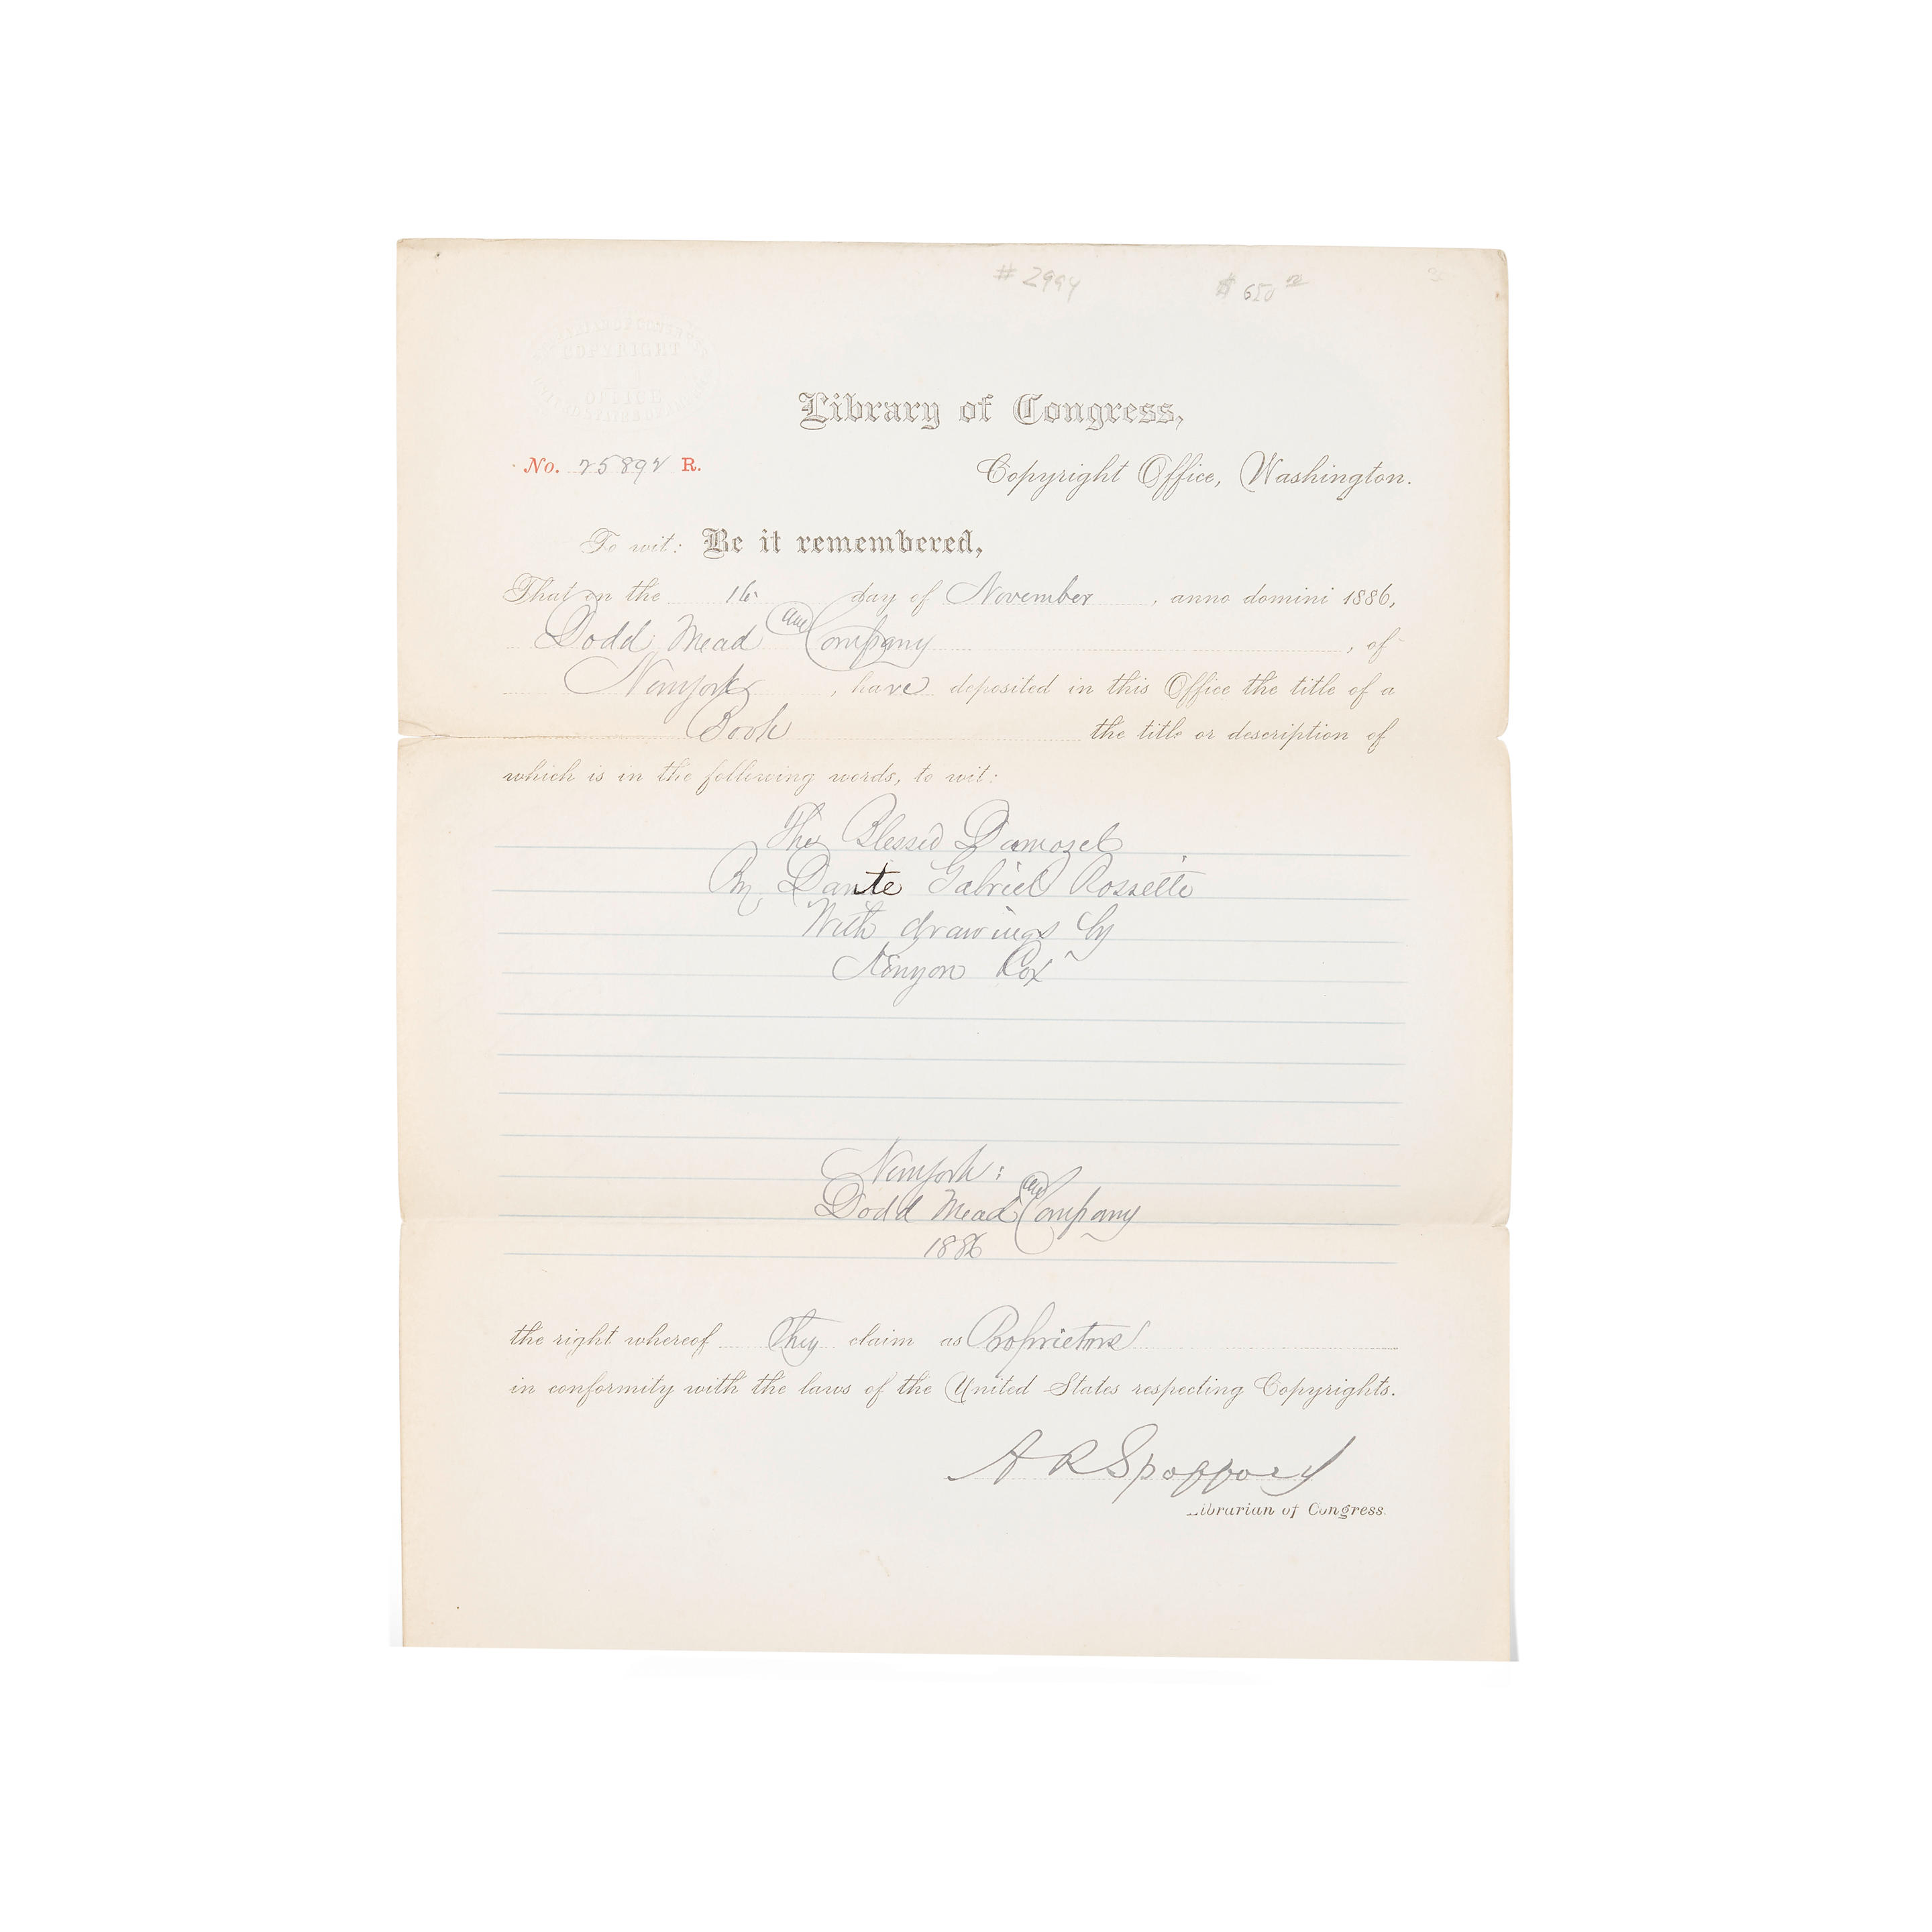 # 2994 $ 650
COPYRIGHT
OFFICE
Library of Congress,
No. 25892 R.
Copyright Office, Washington.
To wit: Be it remembered,
That on the 16 day of November, anno domini 1886,
Dodd Mead and Company, of
New York, have deposited in this Office the title of a
Book the title or description of
which is in the following words, to wit:
The Blessed Damozel
By Dante Gabriel Rossetti
With drawings by
Kenyon Cox
New York:
Dodd Mead and Company
1886
the right whereof they claim as Proprietors
in conformity with the laws of the United States respecting Copyrights.
A R Spofford
Librarian of Congress.